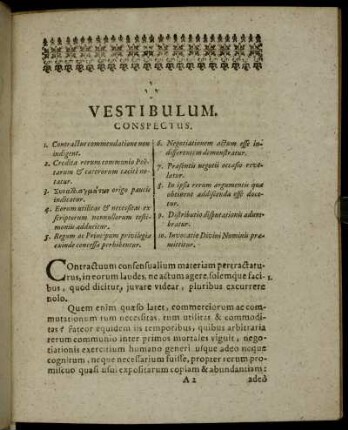 VESTIBULUM.
CONSPECTUS.
1. Contractus commendatione non
indigent.
2. Credita rerum communio Poë-
tarum & caeterorum taciti no-
tatur.
3. origo paucis
indicatur.
4. Earum utilitas & necessitas ex
scriptorum nonnullorum testi-
moniis adducitur.
5. Regum ac Principum privilegia
eisdem concessa perhibentur.
6. Negotiationem actum esse in-
differentem demonstratur.
7. Praesentis negotii occasio reve-
latur.
8. In ipsa rerum argumenta qua
obtinent addiscenda esse doce-
tur.
9. Distributio disputationis adum-
bratur.
10. Invocatio Divini Numinis prae-
mittitur.
Contractuum consensualium materiam pertractatu-
rus, in eorum laudes, ne actum agere, solemque faci-
bus, quod dicitur, juvare videar, pluribus excurrere
nolo.
1.
Quem enim quæso latet, commerciorum ac com-
mutationum tum necessitas, tum utilitas & commodi-
tas? Fateor equidem iis temporibus, quibus arbitraria
rerum communio inter primos mortales viguit, nego-
tiationis exercitium humano generi usque adeo neque
cognitum, neque necessarium fuisse, propter rerum pro-
miscuo quasi usui expositarum copiam & abundantiam:
A 2 adeó